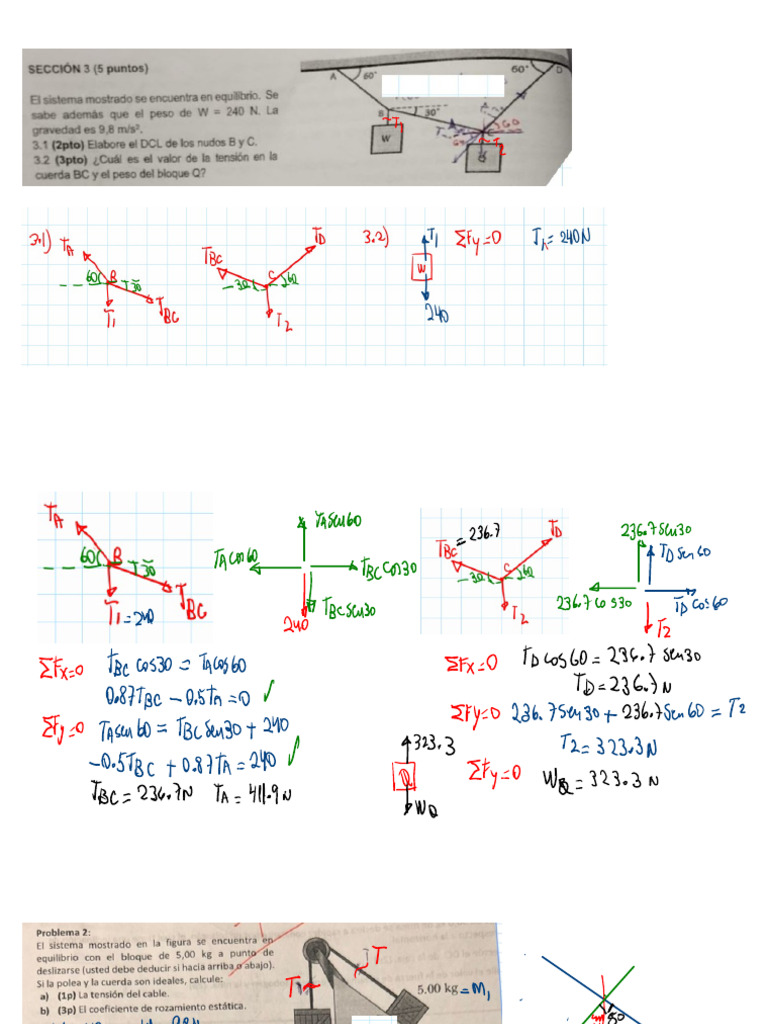 SECCIÓN 3 (5 puntos)
El sistema mostrado se encuentra en equilibrio. Se
sabe además que el peso de W = 240 N. La
gravedad es 9,8 m/s².
3.1 (2pto) Elabore el DCL de los nudos B y C.
3.2 (3pto) ¿Cuál es el valor de la tensión en la
cuerda BC y el peso del bloque Q?
A 60° 60° D
B 30° C
T1 T2
W Q
3.1) TA 60 B 30 T1 TBC
TBC TD C 30 60 T2
3.2) T1 W 240 ΣFy=0 T1=240N
TA 60 B 30 T1=240 TBC
TA sen60 TA cos60 TBC cos30 TBC sen30 240
TBC = 236.7 TD C 30 60 T2
236.7 sen30 TD sen60 236.7 cos30 TD cos60 T2
ΣFx=0 TBC cos30 = TA cos60
0.87TBC - 0.5TA = 0 ✓
ΣFy=0 TA sen60 = TBC sen30 + 240
-0.5TBC + 0.87TA = 240 ✓
TBC = 236.7N TA = 411.9N
ΣFx=0 TD cos60 = 236.7 sen30
TD = 236.7N
ΣFy=0 236.7 sen30 + 236.7 sen60 = T2
T2 = 323.3N
323.3 Q WQ ΣFy=0 WQ = 323.3N
Problema 2:
El sistema mostrado en la figura se encuentra en
equilibrio con el bloque de 5,00 kg a punto de
deslizarse (usted debe deducir si hacia arriba o abajo).
Si la polea y la cuerda son ideales, calcule:
a) (1p) La tensión del cable.
b) (3p) El coeficiente de rozamiento estática.
T T
5.00 kg = M1